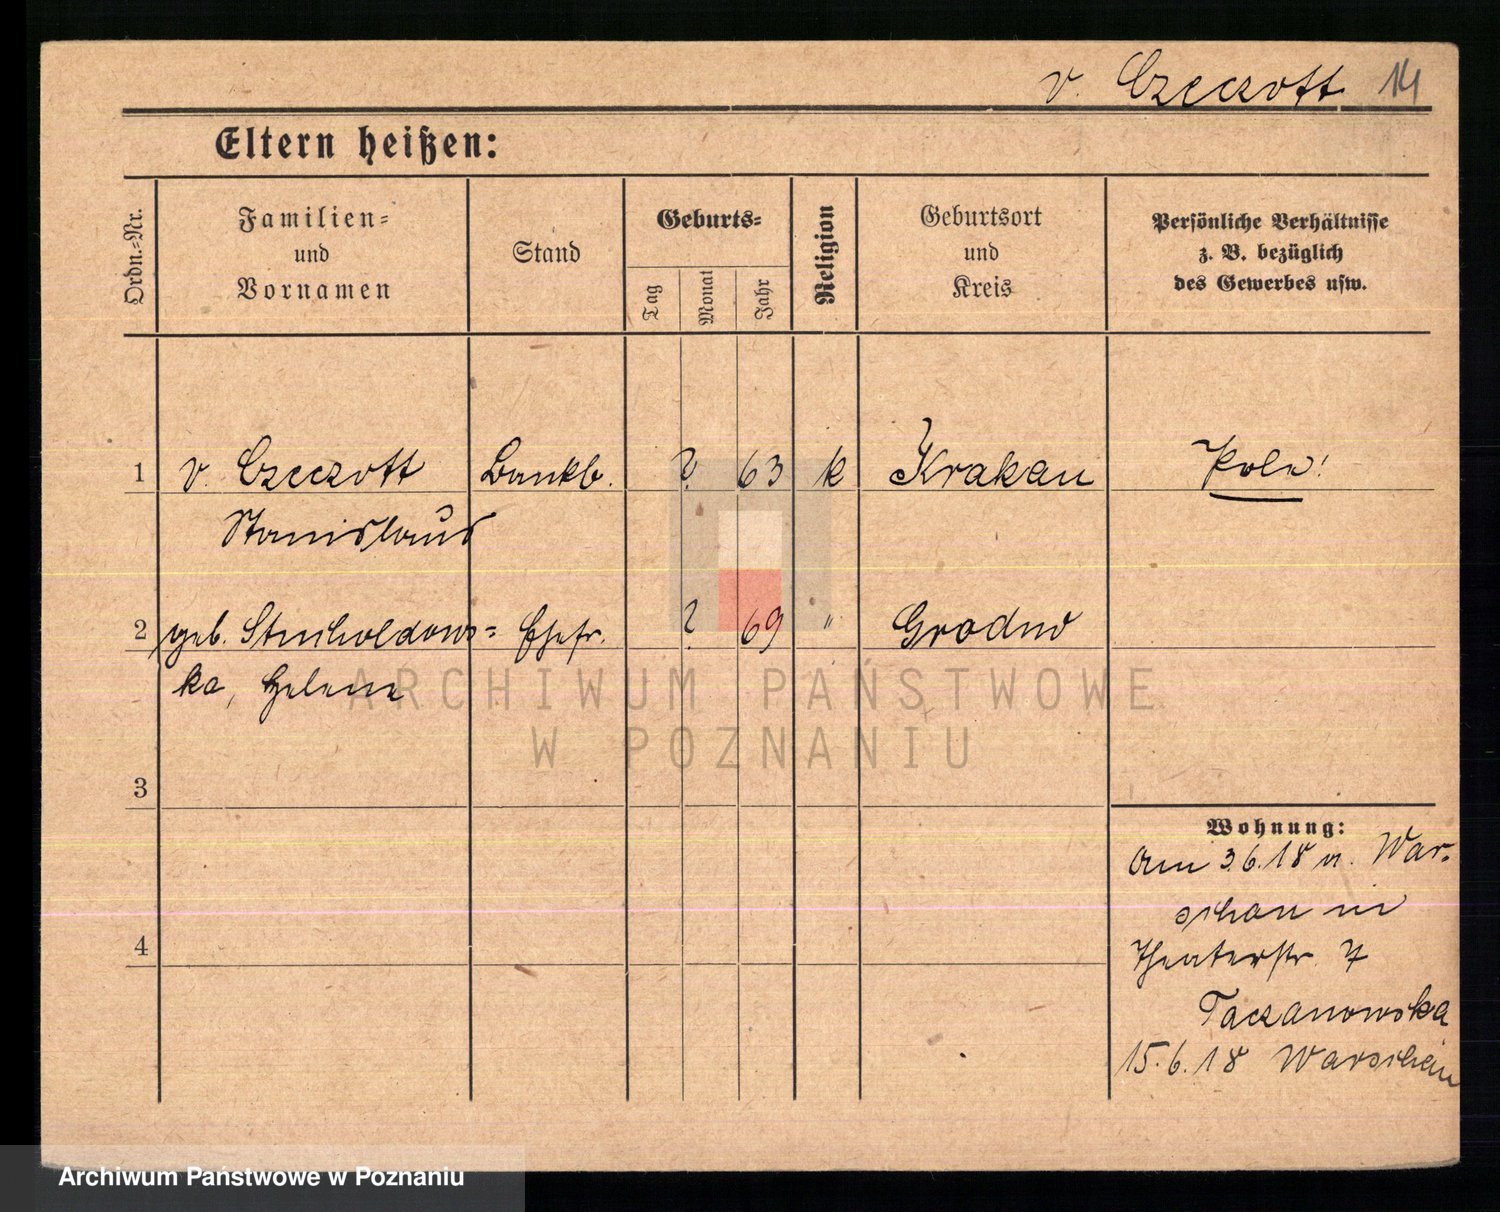 v. Czeczott 14
Eltern heißen:
Ordn.-Nr.
Familien-
und
Vornamen
Stand
Geburts-
Tag
Monat
Jahr
Religion
Geburtsort
und
Kreis
Persönliche Verhältnisse
z. B. bezüglich
des Gewerbes usw.
1 v. Czeczott Bankb. ? 63 k Krakau Pole!
Stanislaus
2 geb. Ehefr. ? 69 " Grodno
ka, Helene
ARCHIWUM PAŃSTWOWE
W POZNANIU
3
Wohnung:
Am 3.6.18 v. War-
schau in
4
Theaterstr. 7
Taczanowska
15.6.18 Warschau
Archiwum Państwowe w Poznaniu